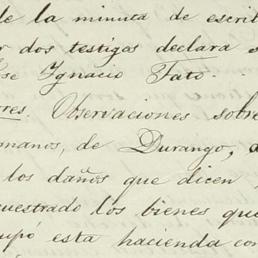 de la minuta de escrit
r dos testigos declara s
ose Ignacio Fato.
rres. Observaciones sobre
rmanos, de Durango, a
los daños que dicen
uestrado los bienes que
upó esta hacienda con